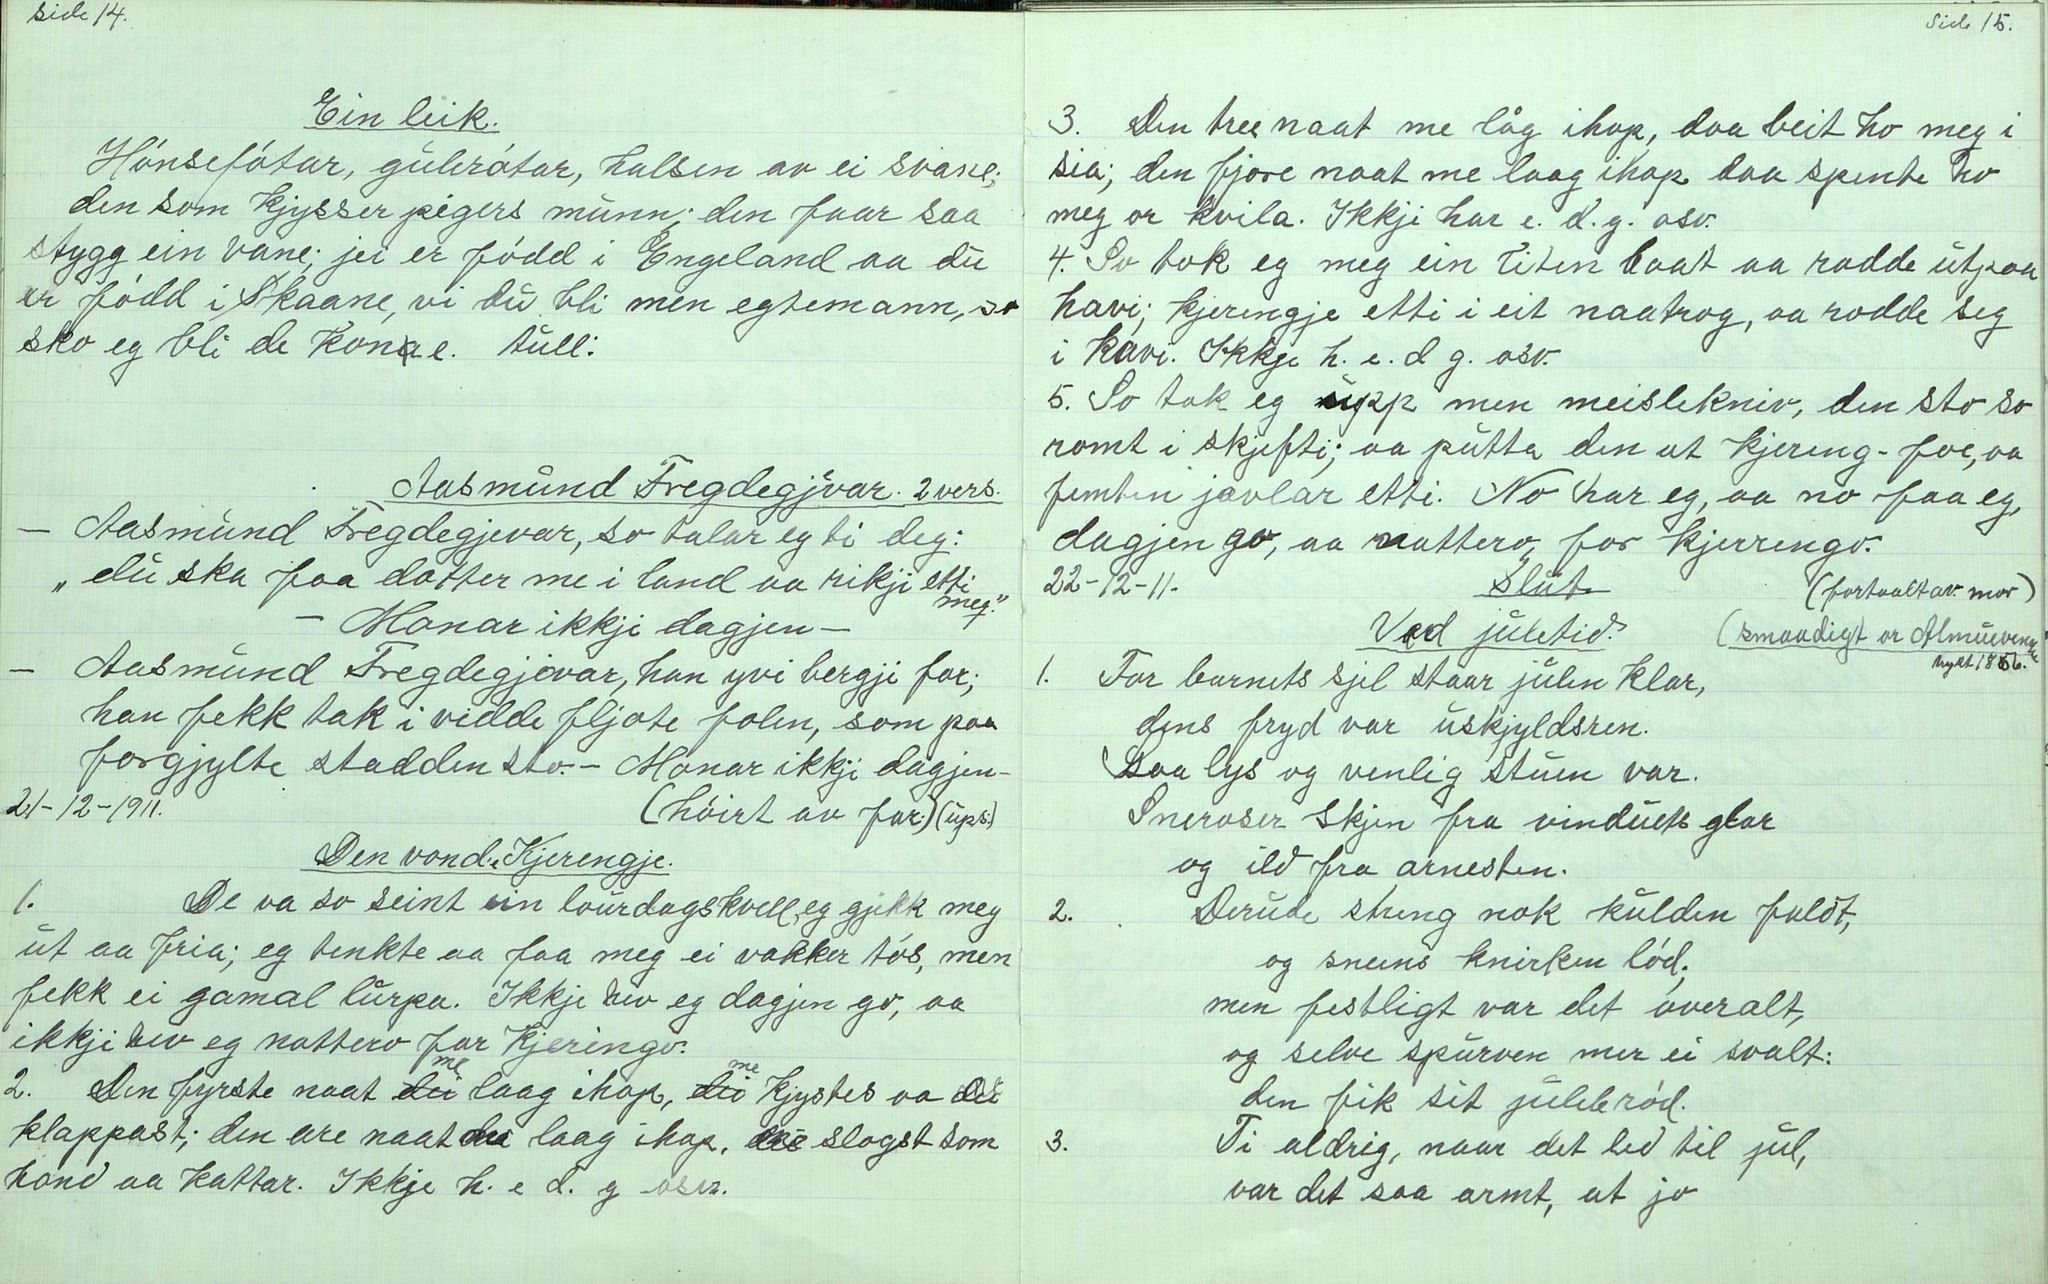 side 14.
Ein leik.
Hónsefótar, gulerótar, halsen av ei svane;
den som kjysser pigers munn; den faar saa
stygg ein vane; jei er fódd i Engeland aa du
er fódd i Skaane, vi du bli men egtemann, so
sko eg bli de kone. tull:
Aasmund Fregdegjevar. 2 vers.
— Aasmund Fregdegjevar, so talar eg ti deg:
„du ska faa dotter me i land aa rikji etti
meg."
— Manar ikkji dagjen —
— Aasmund Fregdegjevar, han yvi bergji for;
han fekk tak i vidde fljote folen, som paa
forgjylte stadden sto. — Manar ikkji dagjen —
21-12-1911. (hóirt av far.) (ups.)
Den vonde Kjerengje.
1. De va so seint ein lourdagskvell, eg gjekk meg
ut aa fria; eg tenkte aa faa meg ei vakker tós, men
fekk ei gamal lurpa. Ikkje hev eg dagjen go, aa
ikkji hev eg nattero for Kjeringo.
me me
2. Den fyrste naat dei laag ihop, dei kjystes aa dei
klappast; den are naat dei laag ihop, dei slogst som
hond aa kattar. Ikkje h. e d. g osv.
side 15.
3. Den tree naat me låg ihop, daa beit ho meg i
sia; den fjore naat me laag ihop daa spente ho
meg or kvila. Ikkji har e. d. g. osv.
4. So tok eg meg ein liten baat aa rodde utpaa
havi; kjerengje etti i eit naatrog, aa rodde seg
i kavi. Ikkje h. e. d g. osv.
5. So tok eg upp men meislekniv, den sto so
romt i skjefti; aa putta den ut kjering-foe, aa
femten javlar etti. No har eg, aa no faa eg,
dagjen go, aa nattero, for kjerrengo.
22-12-11. Slut. (fortaalt av mor)
Ved juletid. (smaadigt or Almuevennen
trykt 1856.
1. For barnets sjel staar julen klar,
dens fryd var uskjyldsren.
Saa lys og venlig stuen var.
Sneroser skjen fra vinduets glar
og ild fra arnesten.
2. Derude streng nok kulden faldt,
og sneens knirken lód;
men festligt var det overalt,
og selve spurven mer ei svalt:
den fik sit julebród.
3. Ti aldrig, naar det led til jul,
var det saa armt, at jo